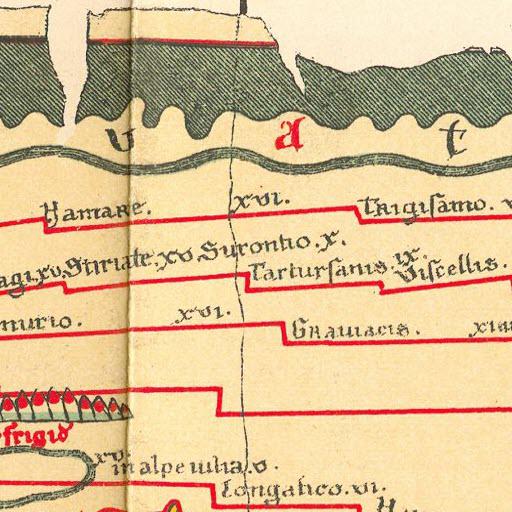 u a t
Hamare. xvi. Trigisamo.
agi.xv. Stiriate. xv Surontio. x.
Tartursanis. ix. Viscellis.
murio. xvi. Graviacis. xiai
frigid
xv. in alpe iulia. v.
Longatico. vi.